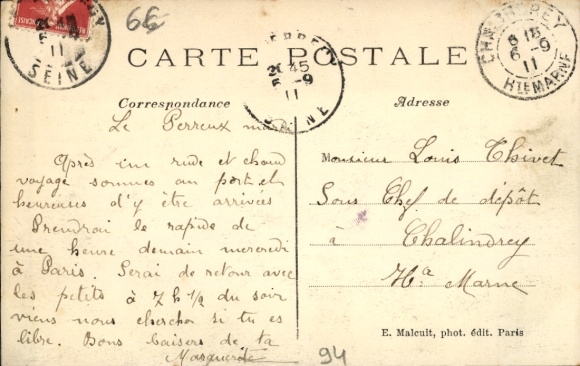 66
CARTE POSTALE
SEINE
45
9
11
CHALINDREY
6 15
6 -9
11
HTE MARNE
Correspondance
Adresse
Le Perreux mardi
Après un rude et chaud
voyage sommes au port et
heureuses d'y être arrivées
Prendrai le rapide de
une heure demain mercredi
à Paris. Serai de retour avec
les petits à 7 h 1/2 du soir
viens nous chercher si tu es
libre. Bons baisers de ta
Marguerite
Monsieur Louis Thivet
Sous Chef de dépôt
à Chalindrey
Hte Marne
E. Malcuit, phot. édit. Paris
94